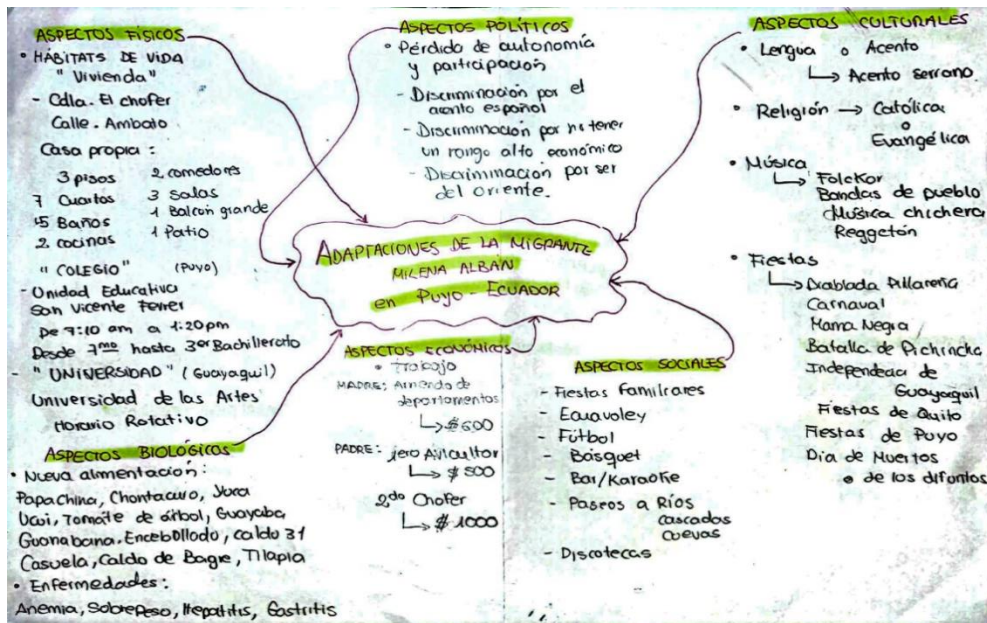 ASPECTOS FÍSICOS
• HÁBITATS DE VIDA
"Vivienda"
- Cdla. El chofer
Calle. Ambato
Casa propia:
3 pisos 2 comedores
7 Cuartos 3 Salas
5 Baños 1 Balcón grande
2 cocinas 1 Patio
"COLEGIO" (PUYO)
- Unidad Educativa
San Vicente Ferrer
De 7:10 am a 1:20 pm
Desde 7mo hasta 3er Bachillerato
- "UNIVERSIDAD" (Guayaquil)
Universidad de las Artes
Horario Rotativo
ASPECTOS BIOLÓGICOS
• Nueva alimentación:
Papachina, Chontacuro, Yuca
Uvi, Tomate de árbol, Guayaba
Guanabana, Encebollado, caldo 31
Casuela, Caldo de Bagre, Tilapia
• Enfermedades:
Anemia, Sobrepeso, Hepatitis, Gastritis
ASPECTOS POLÍTICOS
• Pérdido de autonomía
y participación
- Discriminación por el
acento español
- Discriminación por no tener
un rango alto económico
- Discriminación por ser
del oriente.
ADAPTACIONES DE LA MIGRANTE
MILENA ALBÁN
en Puyo - ECUADOR
ASPECTOS ECONÓMICOS
• Trabajo
MADRE: Arriendo de
departamentos
↳ $600
PADRE: 1ero Avicultor
↳ $500
2do Chofer
↳ $1000
ASPECTOS SOCIALES
- Fiestas Familiares
- Ecuavoley
- Fútbol
- Básquet
- Bar/Karaoke
- Paseos a Ríos
cascadas
cuevas
- Discotecas
ASPECTOS CULTURALES
• Lengua o Acento
↳ Acento serrano.
• Religión → Católica
o
Evangélica
• Música
↳ Folcklor
Bandas de pueblo
Música chichera
Reggetón
• Fiestas
↳ Diablada Pillareña
Carnaval
Mama Negra
Batalla de Pichincha
Independecia de
Guayaquil
Fiestas de Quito
Fiestas de Puyo
Día de Muertos
o de los difuntos